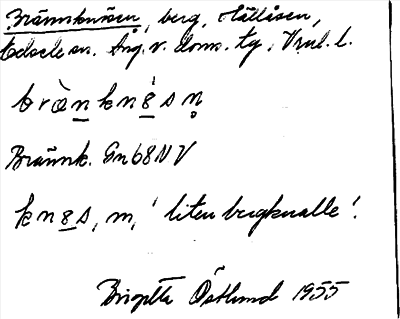 Brännknösen, berg, Hällåsen,
Edsele sn. Ång. v. doms. tg, Vnrl. l.
bràn knø̀sn̥
Brännk. Gn68NV
knøs, m, 'liten bergknalle'.
Birgitta Östlund 1955